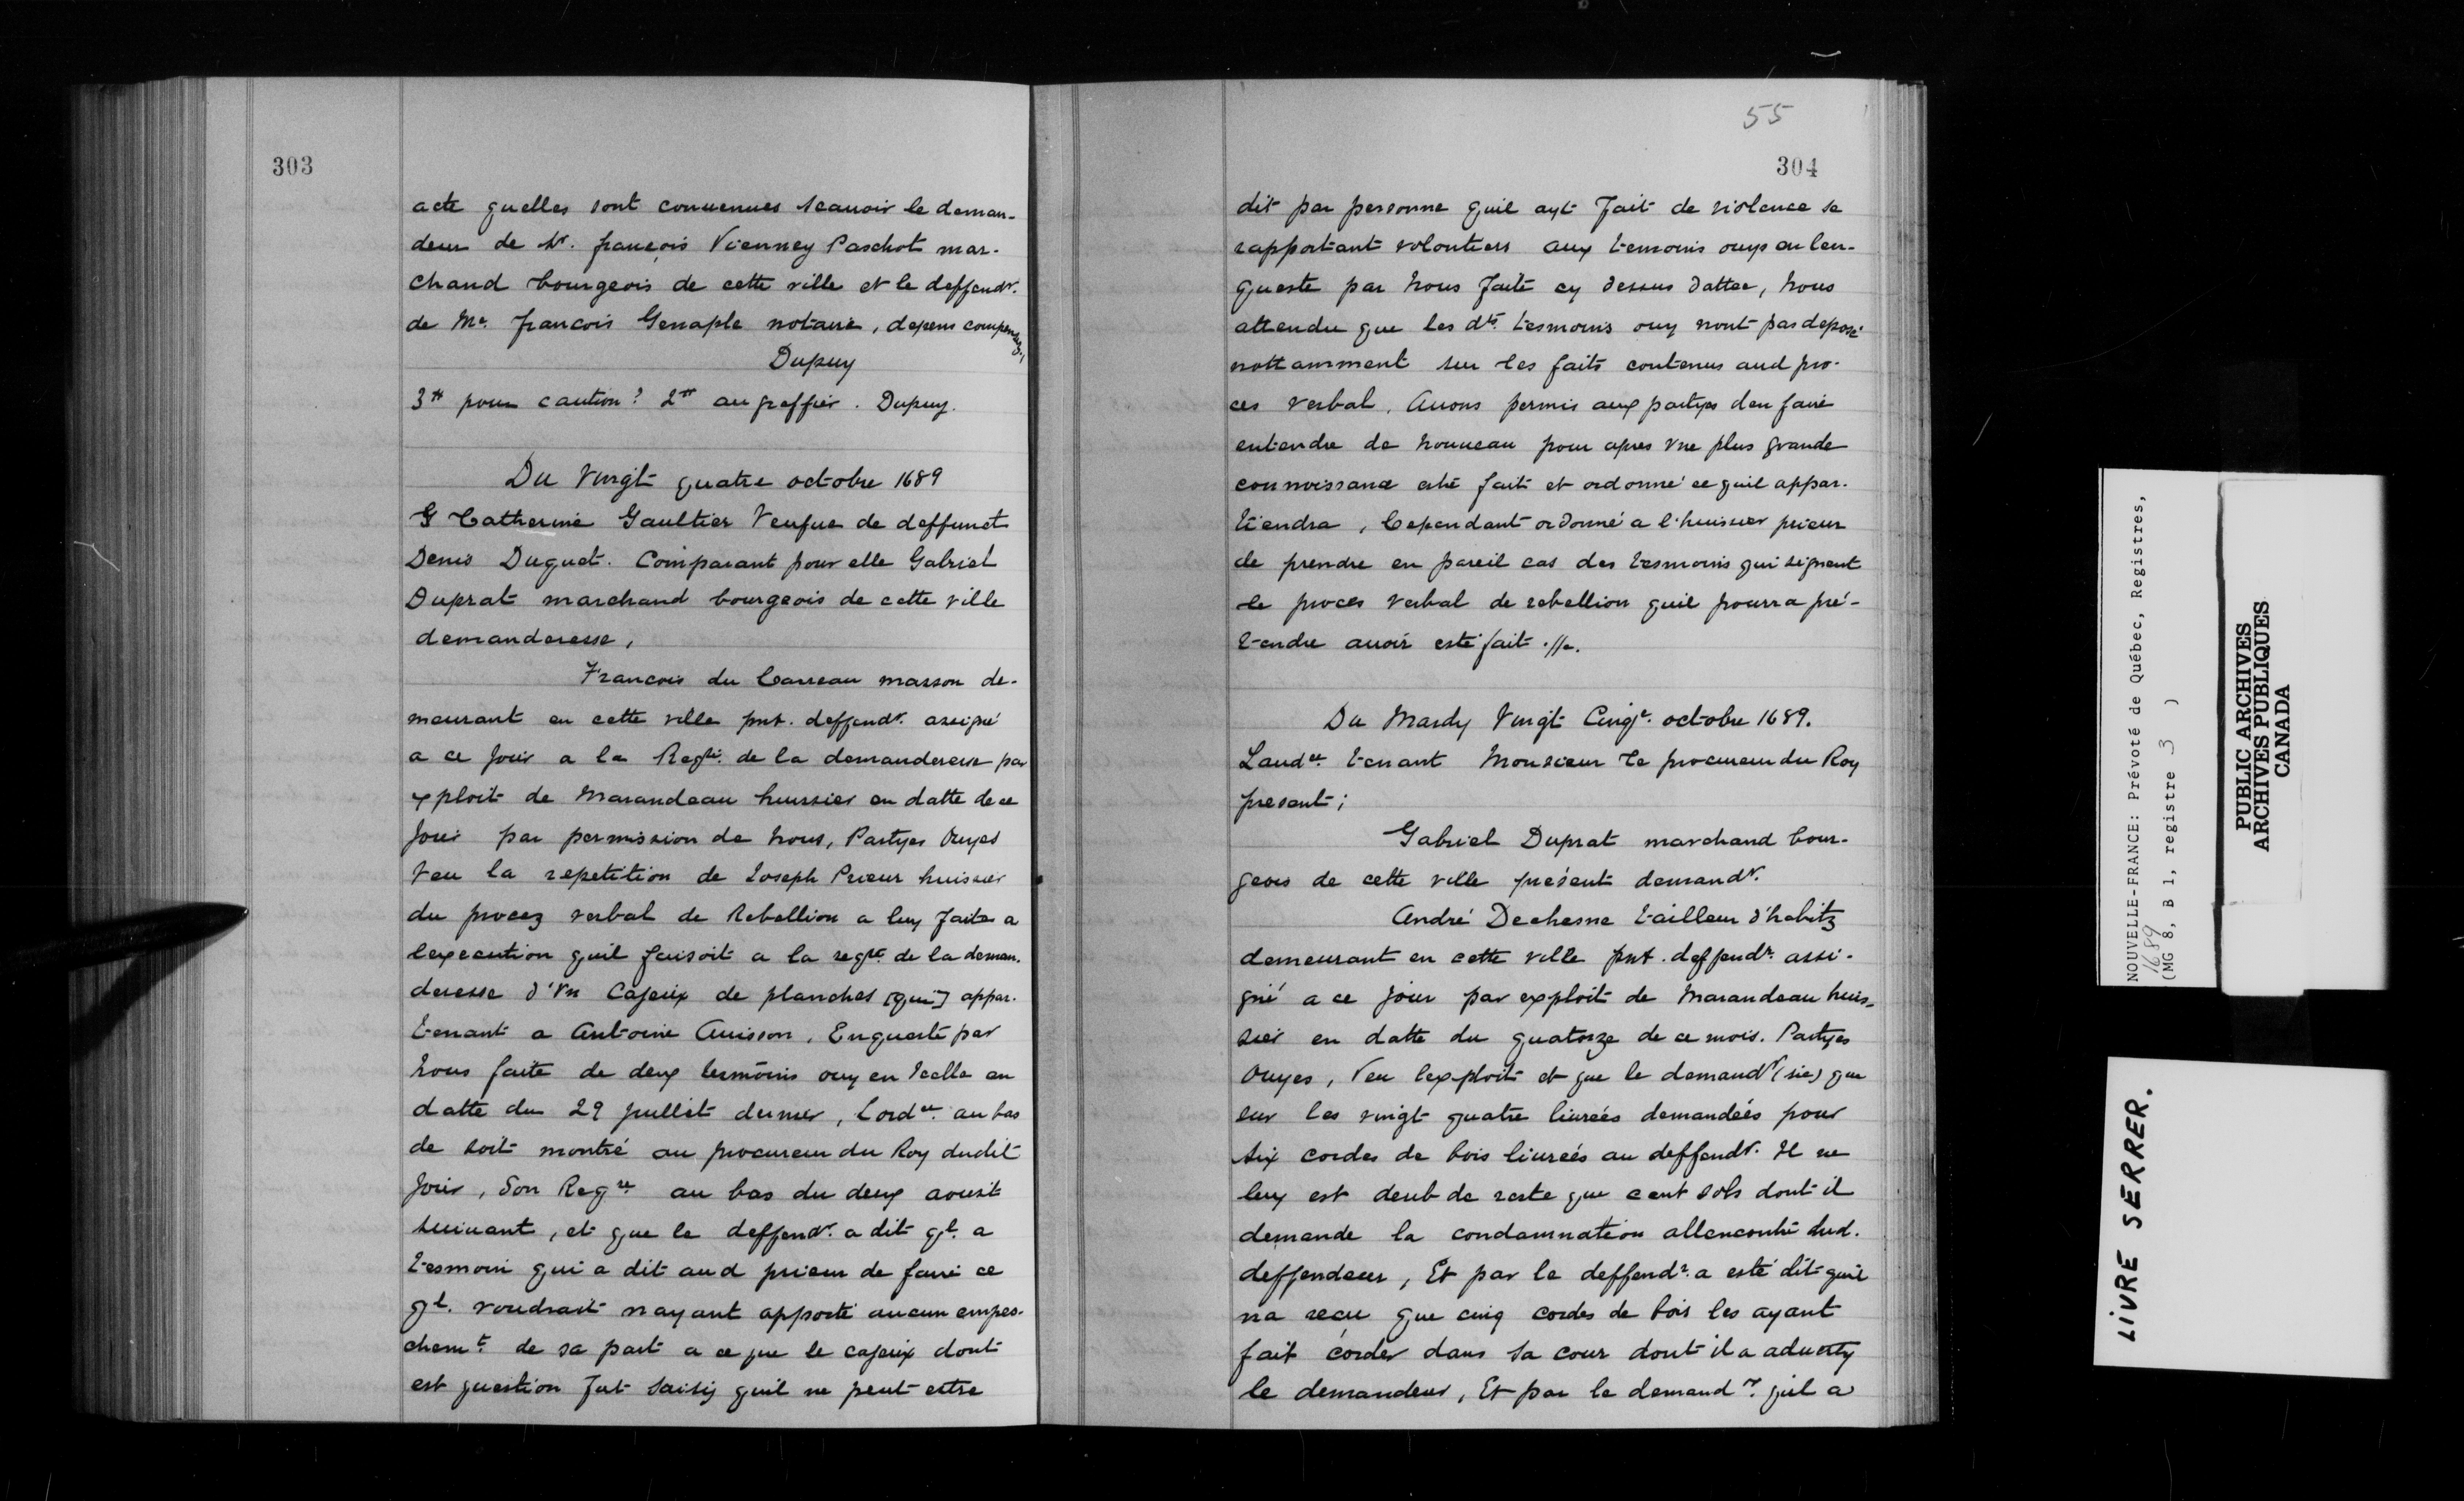 303
acte quelles sont conuenues scauoir le deman-
deur de Sr. françois Vienney Paschot mar-
chand bourgeois de cette ville et le deffendr.
de Me. francois Genaple notaire, depens compensez.
Dupuy
3tt pour caution? 2tt au greffier. Dupuy.
Du Vingt quatre octobre 1689
Catherine Gaultier Veufue de deffunct
Denis Duquet. Comparant pour elle Gabriel
Duprat marchand bourgeois de cette ville
demanderesse,
Francois du Carreau masson de-
meurant en cette ville pnt. deffendr. assigné
a ce jour a la Reqte. de la demanderesse par
exploit de Marandeau huissier en datte de ce
jour par permission de nous, Partyes Ouyes
Veu la repetition de Joseph Prieur huissier
du procez verbal de Rebellion a luy faite a
lexecution quil faisoit a la reqte. de la deman-
deresse d'Vn Cajeux de planches [qui] appar-
tenant a Antoine Auisson, Enqueste par
nous faite de deux tesmoins ouy en Icelle en
datte du 29 juillet dernier, Lordce. au bas
de soit montré au procureur du Roy dudit
jour, Son Reqre. au bas du deux aoust
suiuant, et que le deffendr. a dit ql. a
tesmoin qui a dit aud prieur de faire ce
ql. voudrait nayant apporté aucun empes-
chemt. de sa part a ce que le cajeux dont
est question fut saisy quil ne peut estre
55
304
dit par personne quil ayt fait de violence se
rapportant volontiers aux temoins ouys en len-
queste par nous faite cy dessus dattee, nous
attendu que les dts. tesmoins ouy nont pas deposé
nottamment sur les faits contenus aud pro-
ces verbal, Auons permis aux partyes den faire
entendre de nouueau pour apres vne plus grande
connoissance estre fait et ordonné ce quil appar-
tiendra, Cependant ordonné a l'huissier prieur
de prendre en pareil cas des tesmoins qui signent
le proces verbal de rebellion quil pourra pré-
tendre auoir esté fait .//.
Du Mardy Vingt Cinqe. octobre 1689.
Laudce. tenant Monsieur le procureur du Roy
present;
Gabriel Duprat marchand bour-
geois de cette ville présent demandr.
André Dechesne tailleur d'habitz
demeurant en cette ville pnt. deffendr. assi-
gné a ce jour par exploit de Marandeau huis-
sier en datte du quatorze de ce mois. Partyes
Ouyes, Veu lexploit et que le demandr (sic) que
sur les vingt quatre liurées demandées pour
six cordes de bois liurées au deffendr. Il ne
luy est deub de reste que cent sols dont il
demande la condamnation allencontre dud.
deffendeur, Et par le deffendr. a esté dit quil
na recu que cinq cordes de bois les ayant
fait corder dans sa cour dont il a aduerty
le demandeur, Et par le demandr. quil a
NOUVELLE-FRANCE: Prévoté de Québec, Registres,
1689
(MG 8, B 1, registre 3 )
PUBLIC ARCHIVES
ARCHIVES PUBLIQUES
CANADA
LIVRE SERRER.